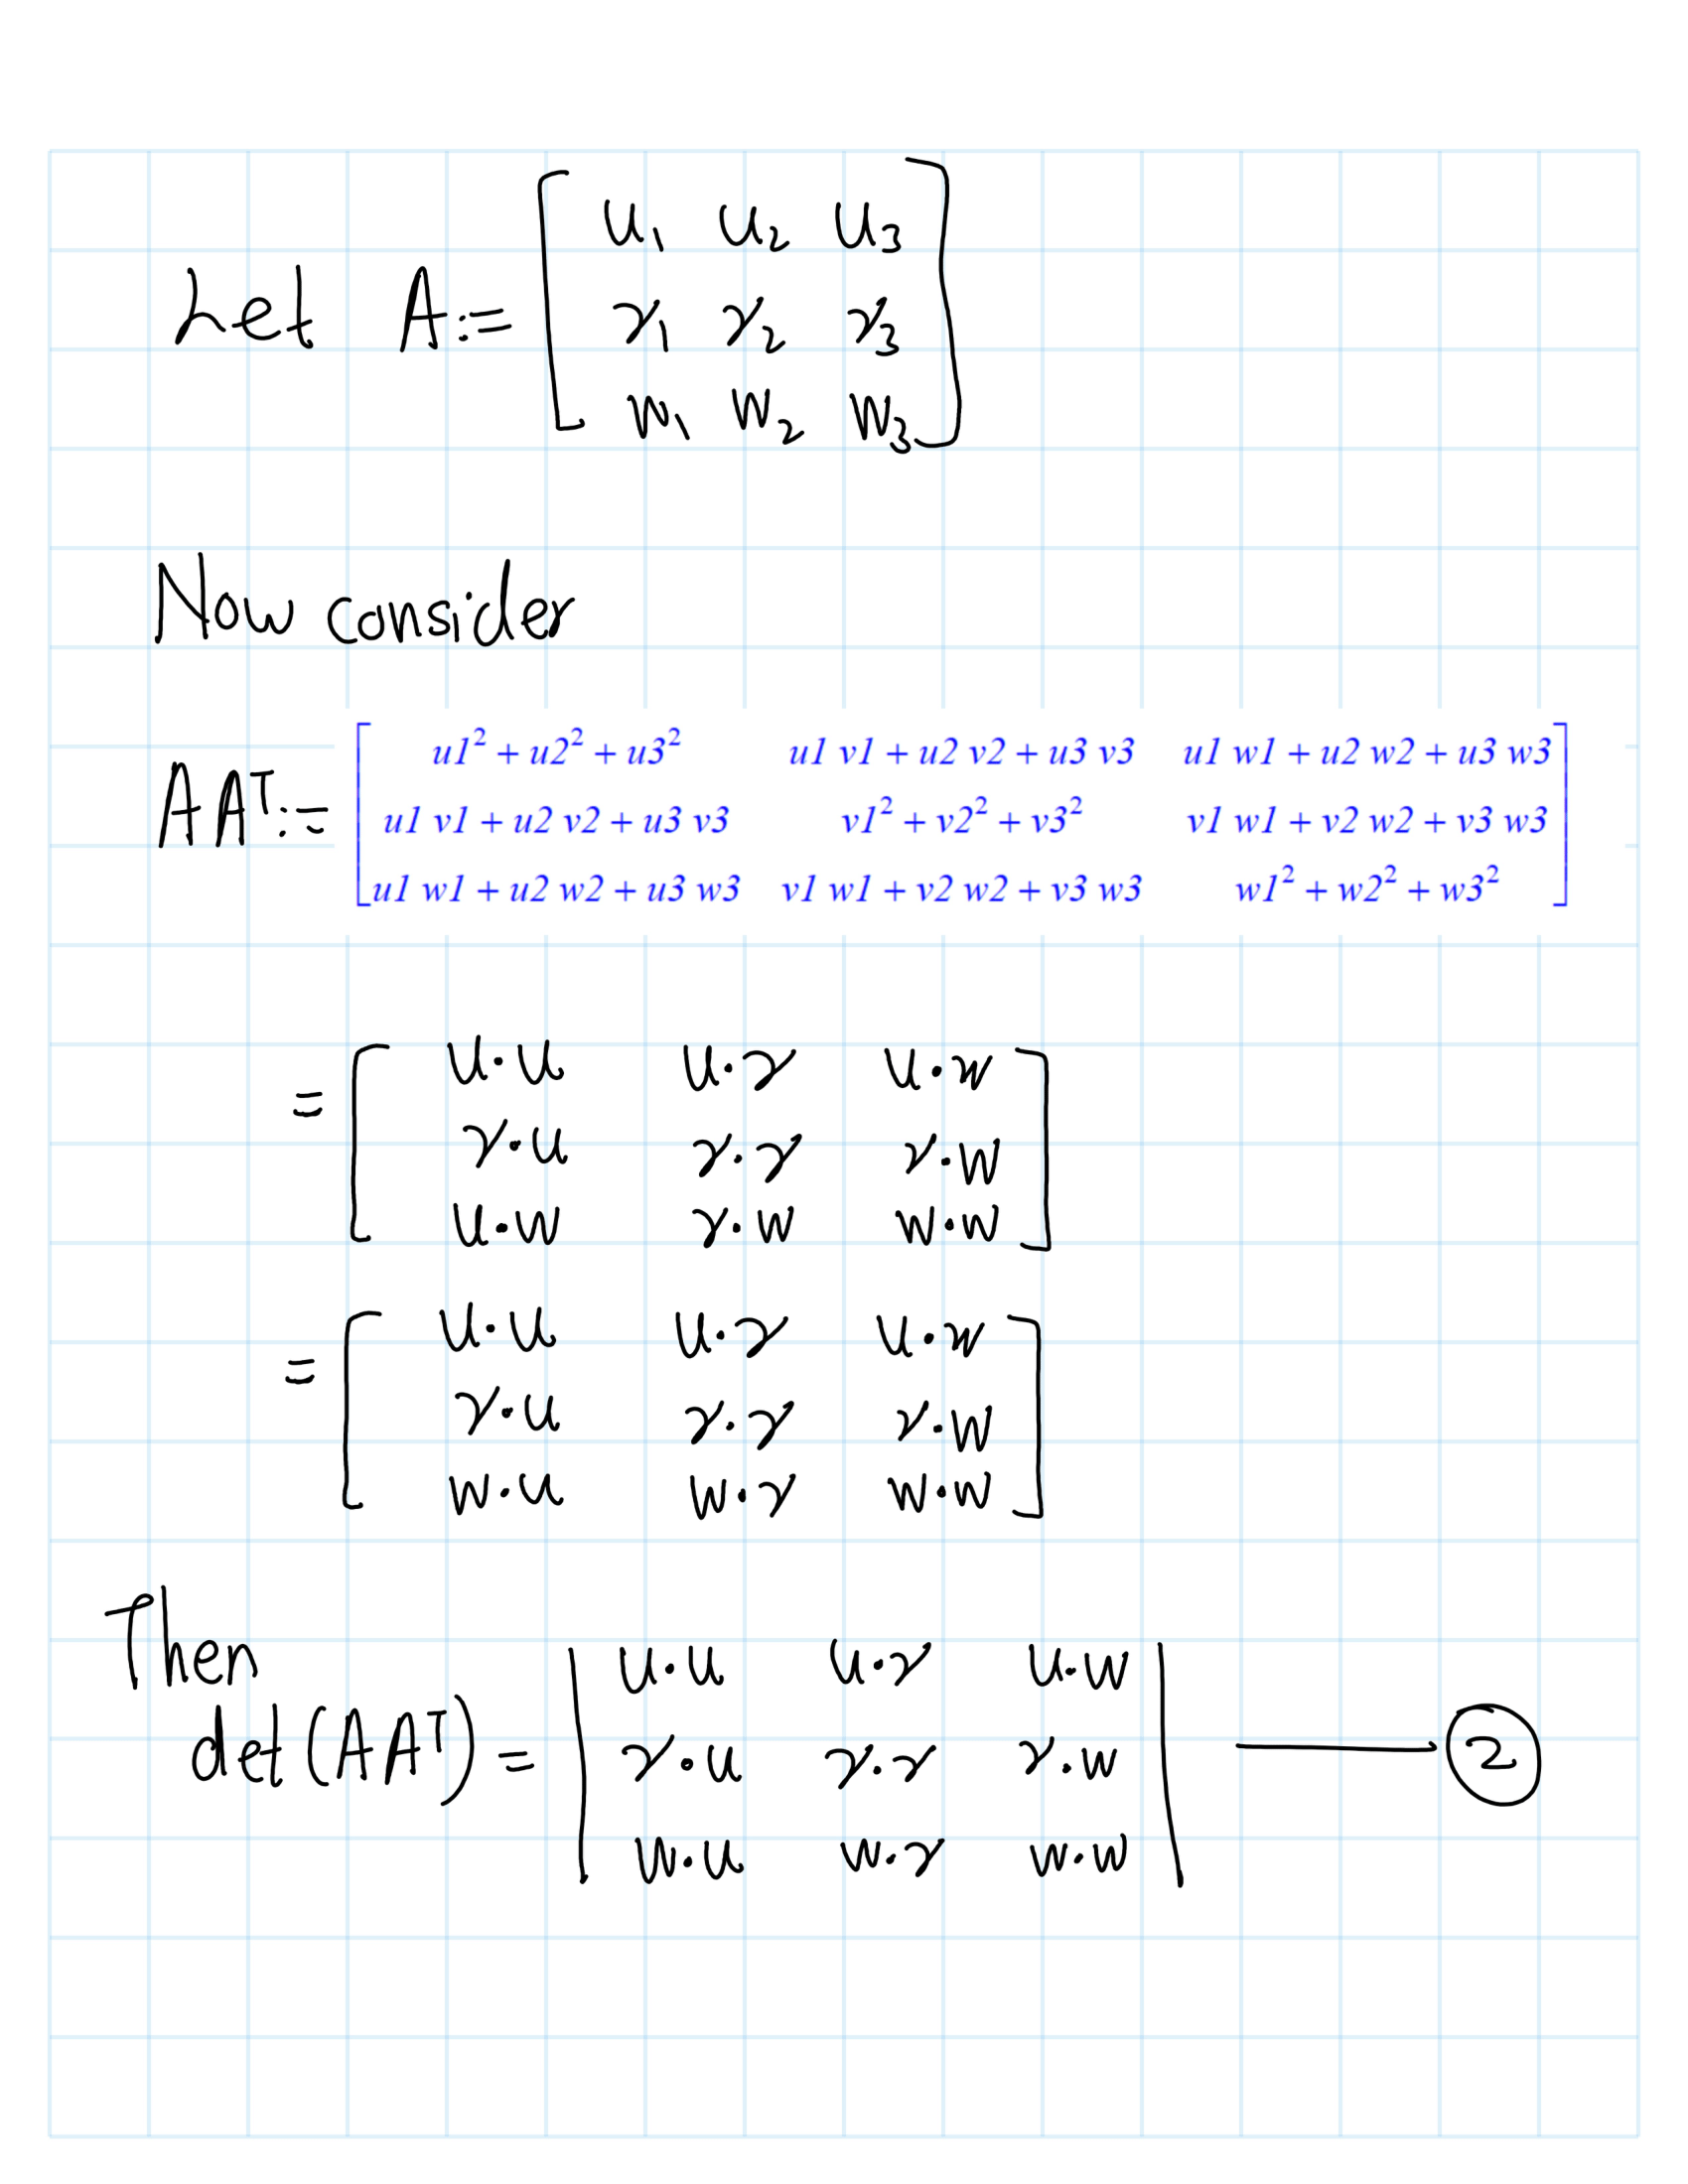 Let A := [ u₁ u₂ u₃
v₁ v₂ v₃
w₁ w₂ w₃ ]
Now consider
AAᵀ := [ u1² + u2² + u3² u1 v1 + u2 v2 + u3 v3 u1 w1 + u2 w2 + u3 w3
u1 v1 + u2 v2 + u3 v3 v1² + v2² + v3² v1 w1 + v2 w2 + v3 w3
u1 w1 + u2 w2 + u3 w3 v1 w1 + v2 w2 + v3 w3 w1² + w2² + w3² ]
= [ u·u u·v u·w
v·u v·v v·w
u·w v·w w·w ]
= [ u·u u·v u·w
v·u v·v v·w
w·u w·v w·w ]
Then
det(AAᵀ) = | u·u u·v u·w
v·u v·v v·w
w·u w·v w·w | ②